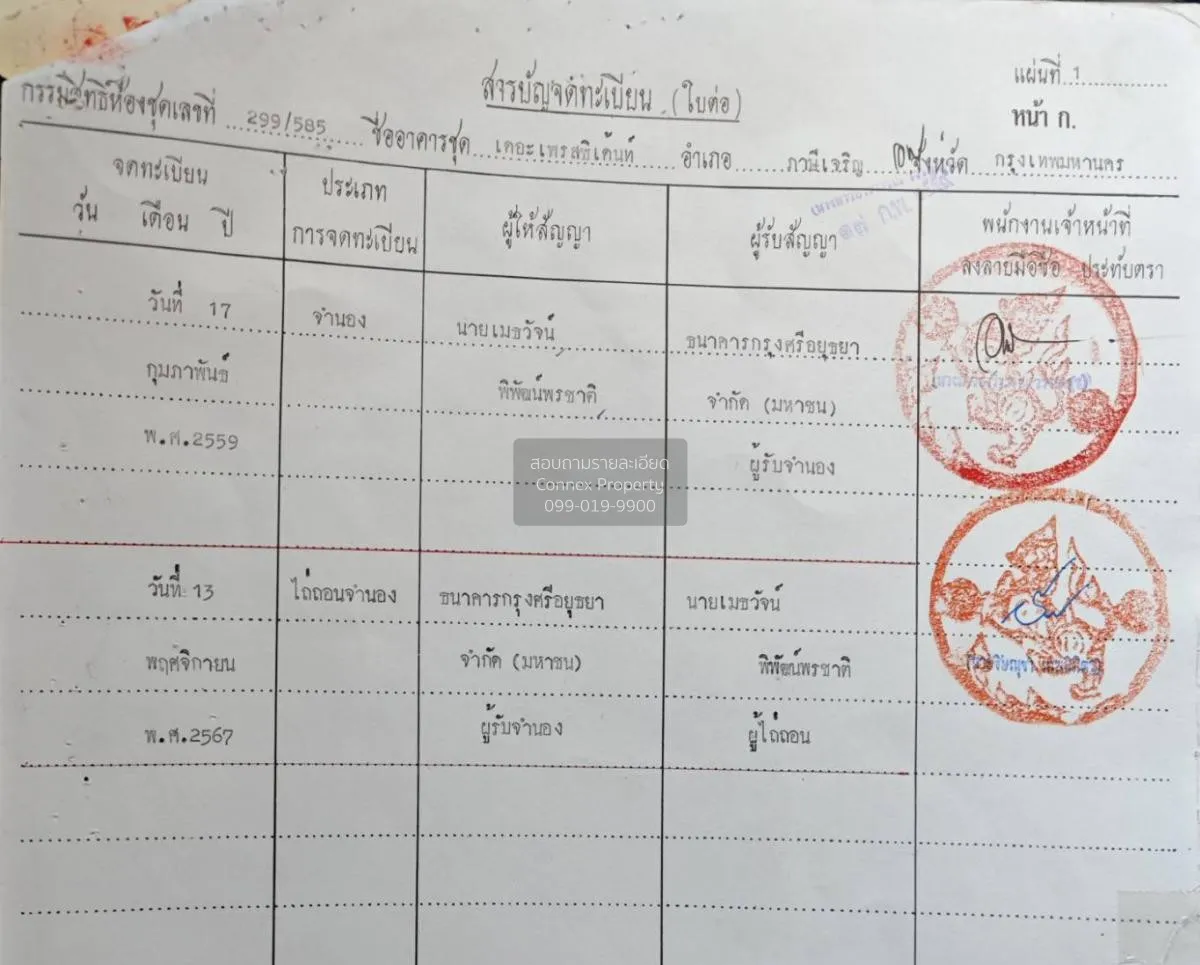 สารบัญจดทะเบียน (ใบต่อ)
แผ่นที่ 1
หน้า ก.
กรรมสิทธิ์ห้องชุดเลขที่ 299/585 ชื่ออาคารชุด เดอะเพรสซิเด้นท์ อำเภอ ภาษีเจริญ จังหวัด กรุงเทพมหานคร
จดทะเบียน
วัน เดือน ปี
ประเภท
การจดทะเบียน
ผู้ให้สัญญา
ผู้รับสัญญา
พนักงานเจ้าหน้าที่
ลงลายมือชื่อ ประทับตรา
วันที่ 17 จำนอง นายเมธวัจน์ ธนาคารกรุงศรีอยุธยา
กุมภาพันธ์ พิพัฒน์พรชาติ จำกัด (มหาชน)
พ.ศ.2559 ผู้รับจำนอง
สอบถามรายละเอียด
Connex Property
099-019-9900
วันที่ 13 ไถ่ถอนจำนอง ธนาคารกรุงศรีอยุธยา นายเมธวัจน์
พฤศจิกายน จำกัด (มหาชน) พิพัฒน์พรชาติ
พ.ศ.2567 ผู้รับจำนอง ผู้ไถ่ถอน